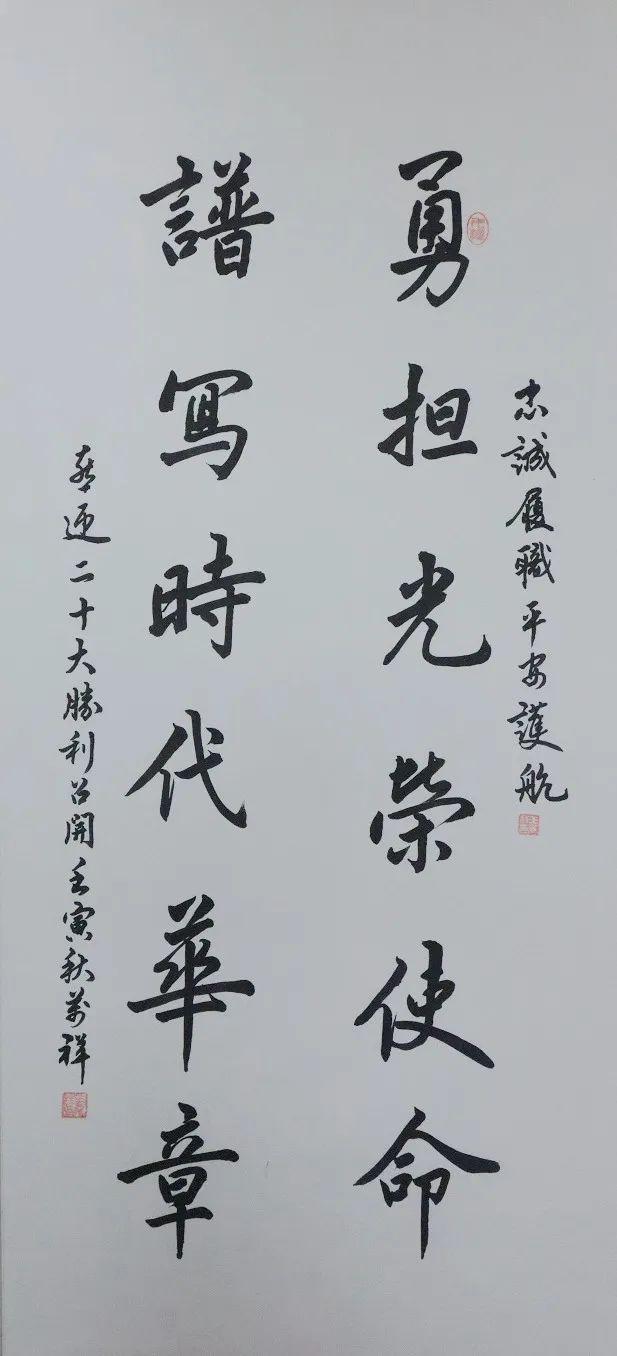 忠誠履職平安護航
勇担光榮使命
譜寫時代華章
喜迎二十大勝利召開壬寅秋萬祥